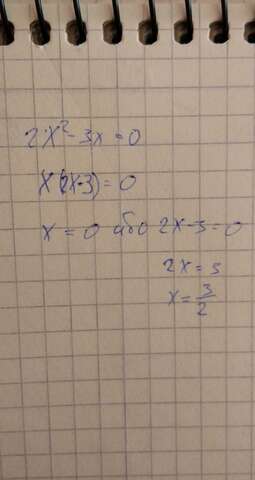 2x² - 3x = 0
x(2x-3) = 0
x = 0 або 2x-3=0
2x = 3
x = 3/2